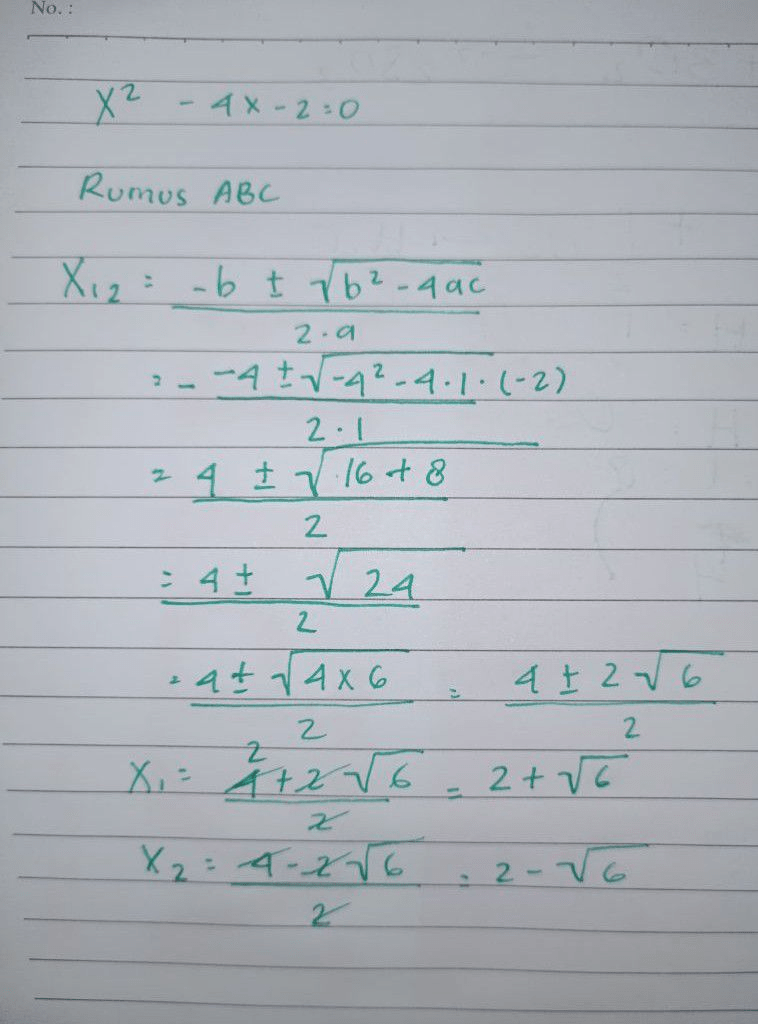 No. :
x² - 4x - 2 = 0
Rumus ABC
X₁₂ = (-b ± √(b² - 4ac)) / (2·a)
= - (-4 ± √(-4² - 4·1·(-2))) / (2·1)
= (4 ± √(16 + 8)) / 2
= (4 ± √24) / 2
= (4 ± √(4 x 6)) / 2 = (4 ± 2√6) / 2
X₁ = (4 + 2√6) / 2 = 2 + √6
X₂ = (4 - 2√6) / 2 = 2 - √6